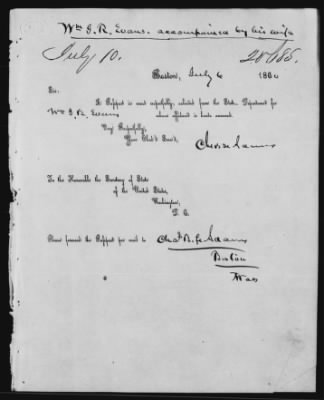 Wm J. R. Evans. accompanied by his wife
July 10. 28685.
Boston, July 6 1860
Sir,
A Passport is most respectfully solicited from the State Department for
Wm J. R. Evans whose affidavit is hereto annexed.
Very Respectfully,
Your Obed't Serv't,
To the Honorable the Secretary of State
of the United States,
Washington,
D. C.
Please forward the Passport for said to
Boston
Mass